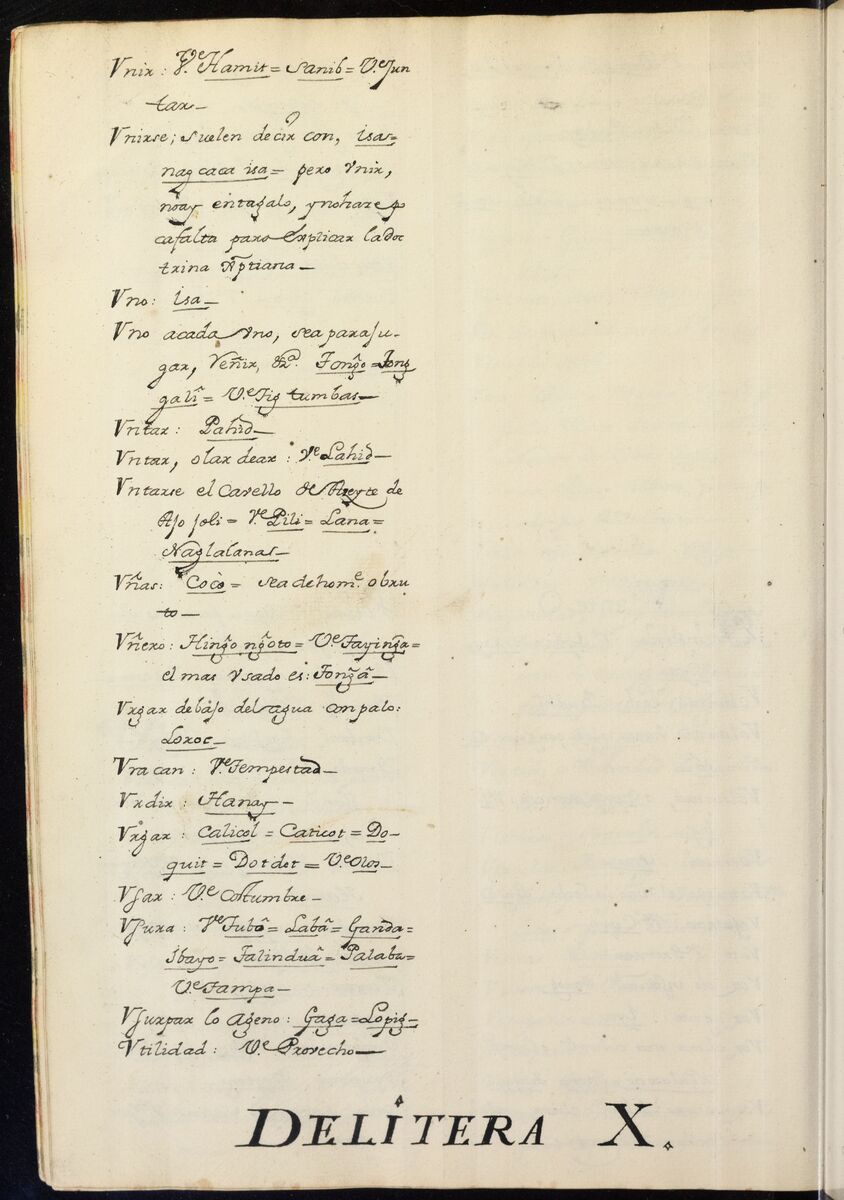 Vnir: V.e Hamit = Sanib = V.e Jun
tar_
Vnirse; suelen decir con, isa =
nagcaca isa = pero vnir,
nòay entagalo, ynohare p
cafalta para explicar ladoc
trina Xptiana _
Vno: isa _
Vno acada vno, sea para Ju-
gar, Reñir, &a. Tong̃o = Tong
gali = V.e Tig tumbas _
Vntar: Pahid _
Vntar, olar dear: V.e Lahid _
Vntarse el Cavello de Aseyte de
Ajo joli = V.e Pili = Lana =
Naglalanas _
Vñas: Cocò = sea dehom.e obru
to _
Vñero: Hing̃o ng̃oto = V.e Taying̃a =
el mas vsado es: Tong̃ã _
Vrgar debajo del agua conpalo:
Loroc _
Vracan: V.e Tempestad _
Vrdir: Hanay _
Vrgar: Calicol = Caticot = Do-
quit = Dotdot = V.e Olos _
Vsar: V.e Costumbre _
Vsura: V.e Tubõ = Labã = Ganda =
ibayo = Talinduã = Palaba =
V.e Tampa _
Vsurpar lo Ageno: Gaga = Lopig _
Vtilidad: V.e Provecho _
DELITERA X.